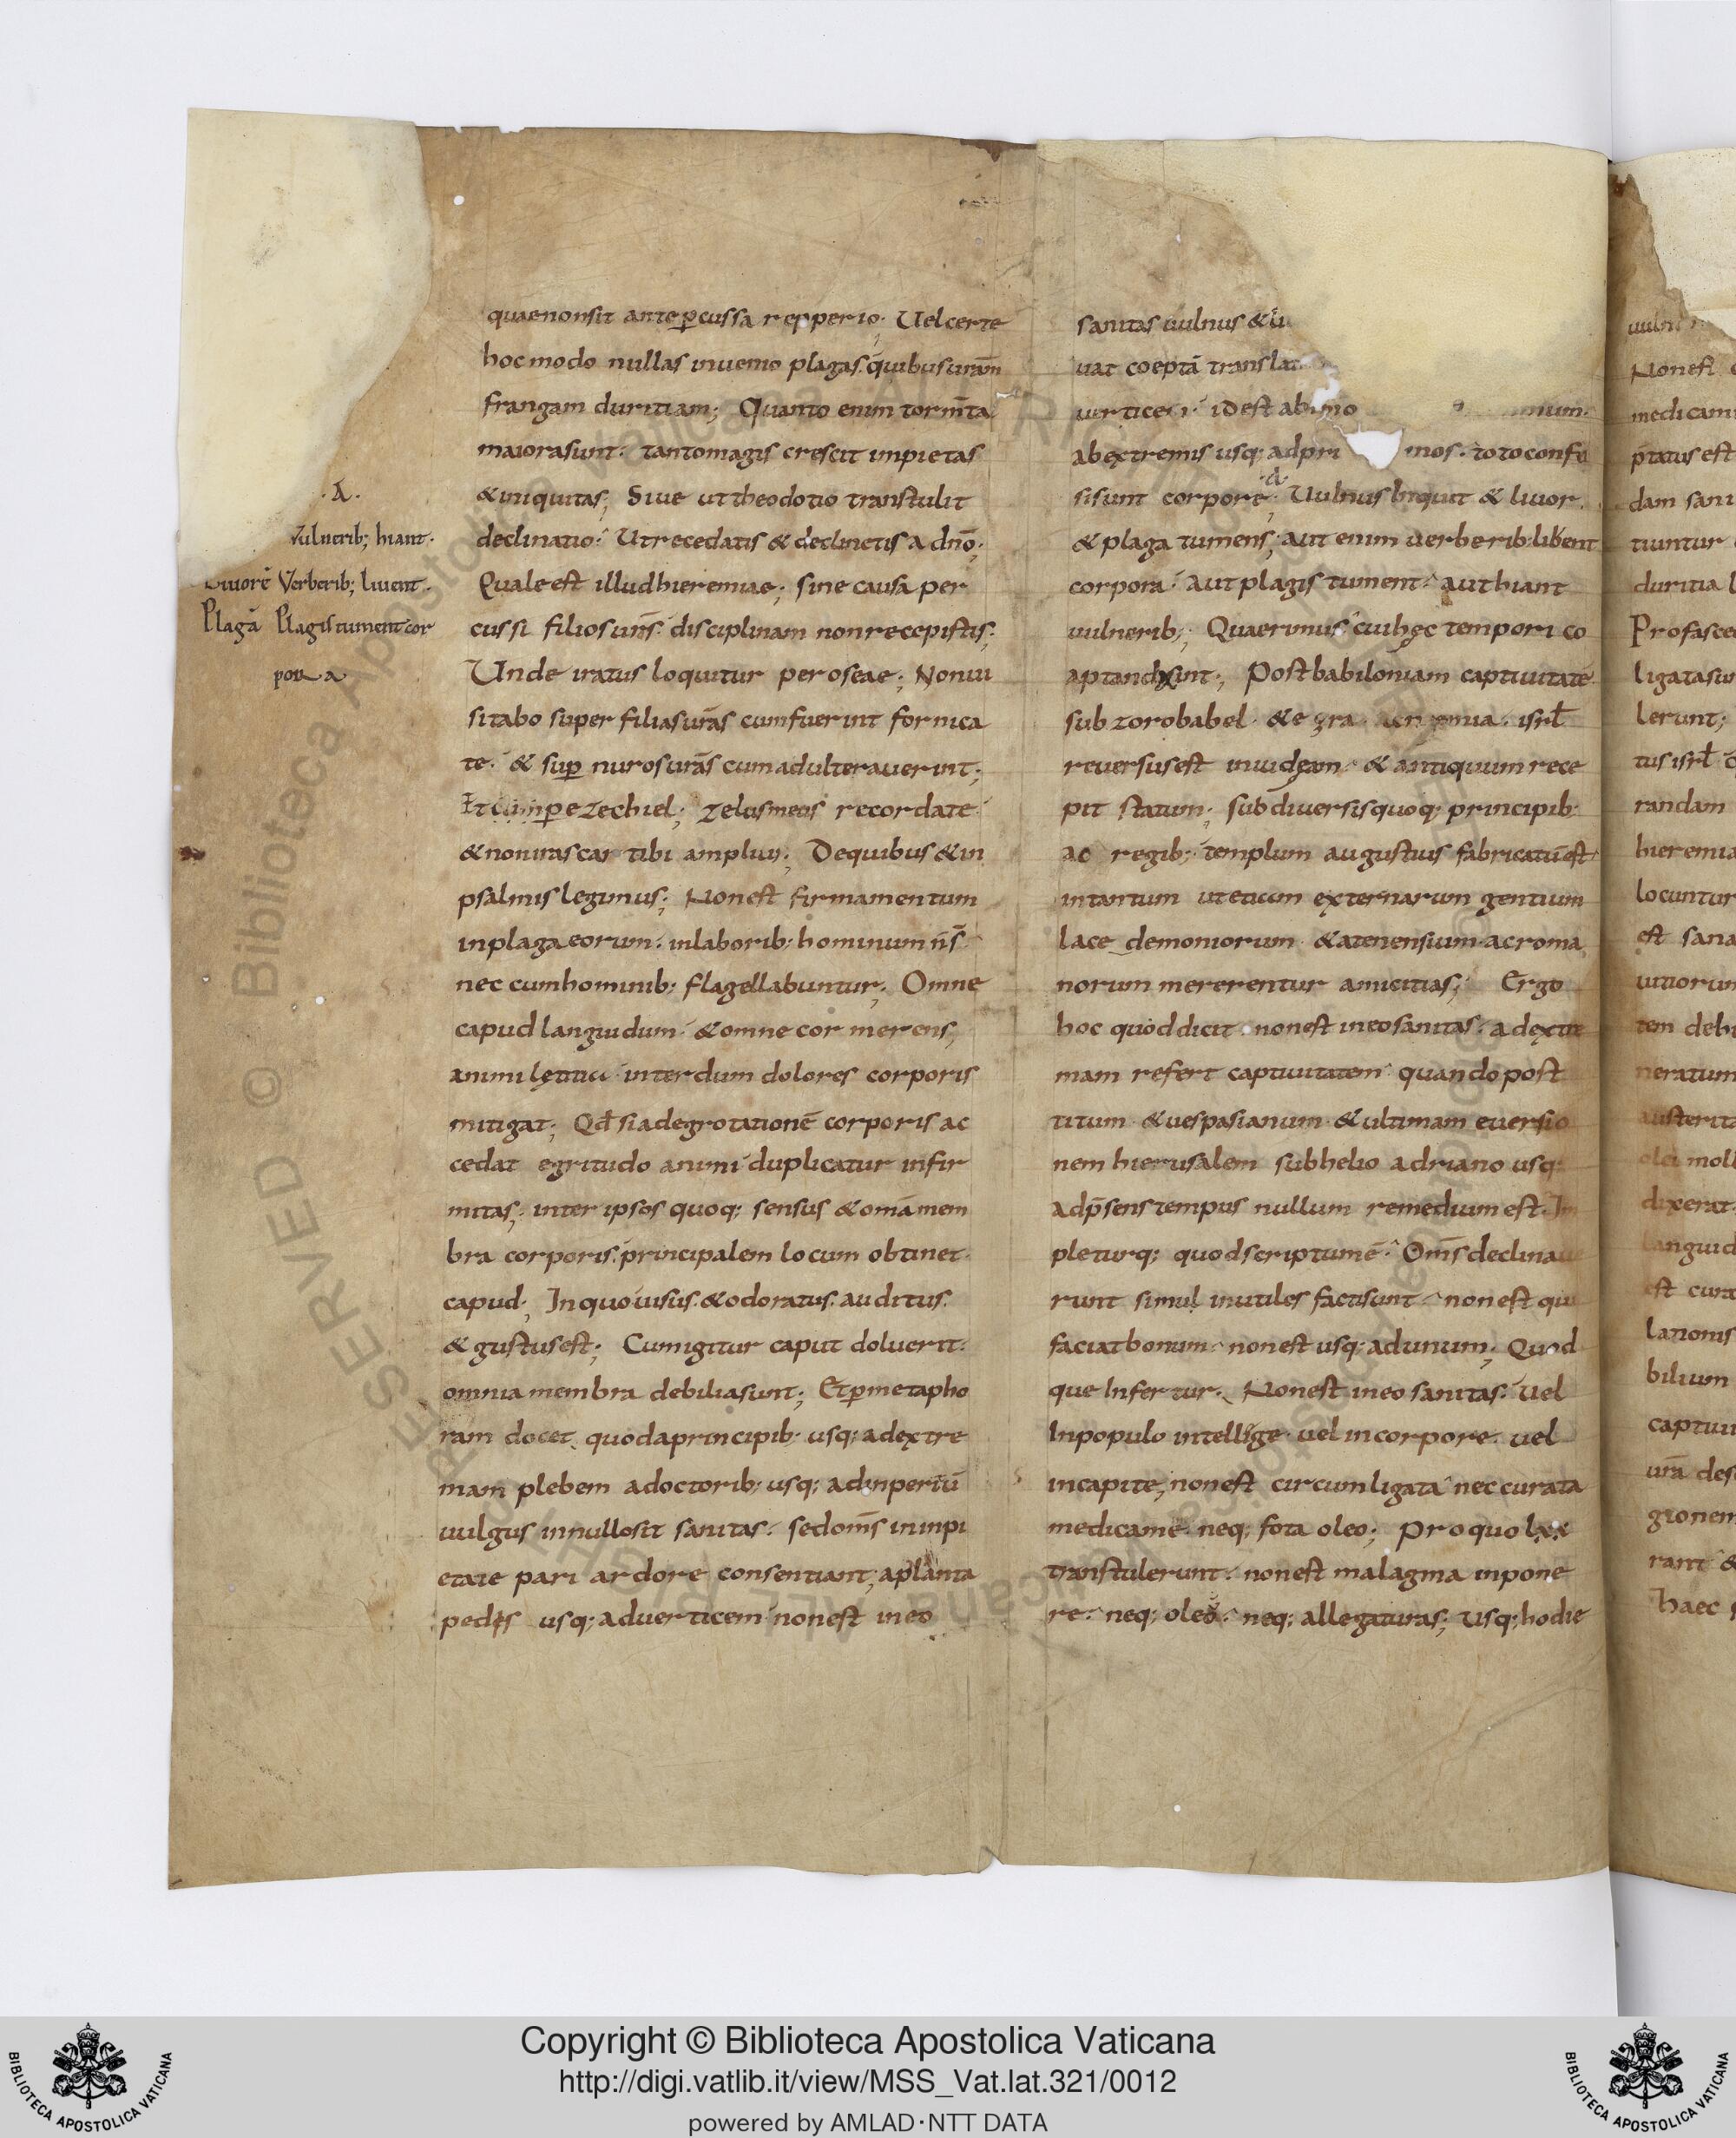 ·A·
Vulnerib; hiant·
Liuorē Verberib; liuent·
Plagā Plagis tument cor
pora
quae non sit ante ꝑcussa repperio· Uel certe
hoc modo nullas inuenio plagas· quibus urām
frangam duritiam; Quanto enim torm̄ta
maiora sunt· tanto magis crescit impietas
& iniquitas; Siue ut theodotio transtulit
declinatio· Ut recedatis & declinetis a dn̄o·
Quale est illud hieremiae; sine causa per
cussi filios urōs· disciplinam non recepistis;
Unde iratus loquitur per oseae; Non ui
sitabo super filias urās cum fuerint fornica
te· & suꝑ nuros urās cum adulterauerint;
Et cum per ezechiel; zelus meus recordate
& non irascar tibi amplius; De quibus & in
psalmis legimus; Non est firmamentum
in plaga eorum· in laborib; hominum n̄ s̄·
nec cum hominib; flagellabuntur; Omne
capud languidum· & omne cor merens;
animi lętitia interdum dolores corporis
mitigat; Qd̄ si ad egrotationē corporis ac
cedat egritudo animi· duplicatur infir
mitas; inter ipsos quoq; sensus & om̄ia mem
bra corporis· principalem locum obtinet·
capud; In quo uisus· & odoratus· auditus·
& gustus est; Cum igitur caput doluerit·
omnia membra debilia sunt; Et ꝑ metapho
ram docet quod a principib; usq; ad extre
mam plebem a doctorib; usq; ad inperitū
uulgus in nullo sit sanitas· sed om̄s in inpi
etate pari ardore consentiant; a planta
pedis usq; ad uerticem· non est in eo
sanitas uulnus & liu
uat coeptā translat
uerticem· id est ab imo mum·
ab extremis usq; ad pri mos· toto confo
si sunt corpore; Uulnus inquit & liuor·
& plaga tumens; aut enim uerberib; libent
corpora· aut plagis tument· aut hiant
uulnerib; Quaerimus cui hęc tempori co
aptanda sint; Post babiloniam captiuitatē
sub zorobabel· & ezra· ac neemia· isrl̄
reuersus est in iudęam· & antiquum rece
pit statum; sub diuersis quoq; principib;
ac regib; templum augustius fabricatū est
in tantum ut etiam externarum gentium
lacedemoniorum· & atenensium· ac roma
norum mererentur amicitias; Ergo
hoc quod dicit· non est in eo sanitas· ad extre
mam refert captiuitatem· quando post
titum· & uespasianum· & ultimam euersio
nem hierusalem sub helio adriano usq;
ad p̄sens tempus nullum remedium est· Im
pleturq; quod scriptum ē· Om̄s declinaue
runt simul inutiles facti sunt· non est qui
faciat bonum· non est usq; ad unum; Quod
que Infertur· Non est in eo sanitas· uel
In populo intellige· uel in corpore· uel
in capite; non est circumligata· nec curata
medicamē· neq; fota oleo; Pro quo lxx
transtulerunt· non est malagma inpone
re· neq; oleo· neq; allegaturas; Usq; hodie
Copyright © Biblioteca Apostolica Vaticana
http://digi.vatlib.it/view/MSS_Vat.lat.321/0012
powered by AMLAD·NTT DATA
BIBLIOTECA APOSTOLICA VATICANA
BIBLIOTECA APOSTOLICA VATICANA